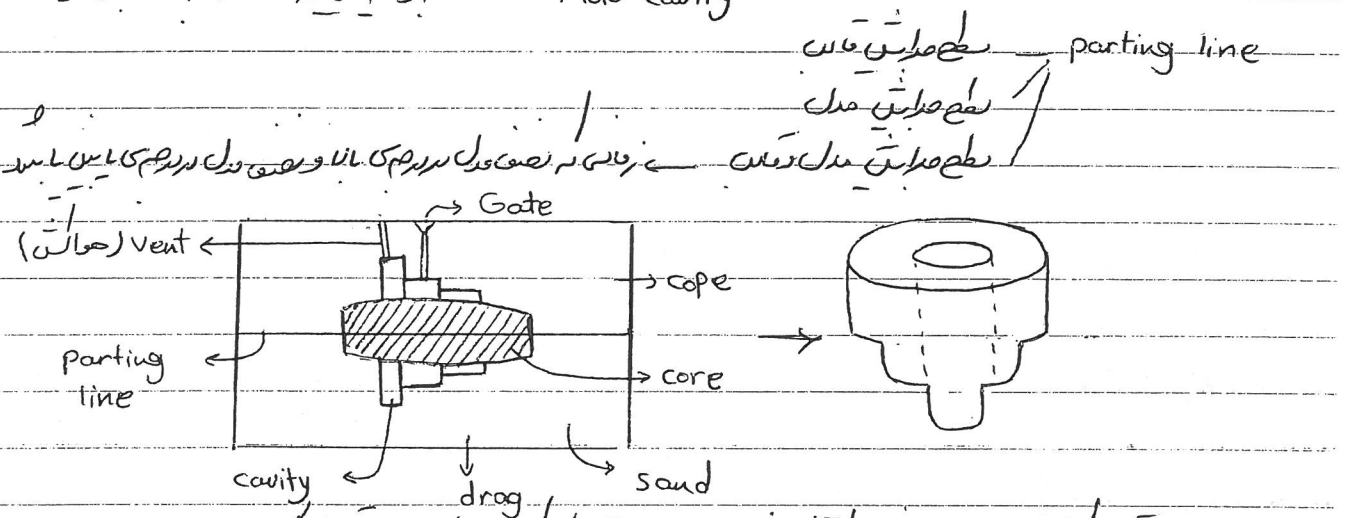 Mold cavity
parting line — سطح جدایش قالب
سطح جدایش مدل
سطح جدایش مدل و قالب ← زمانی که نصف مدل در درجه‌ی بالا و نصف مدل در درجه‌ی پایین باشد
Gate
Vent (هواکش)
cope
parting line
core
cavity
drag
sand